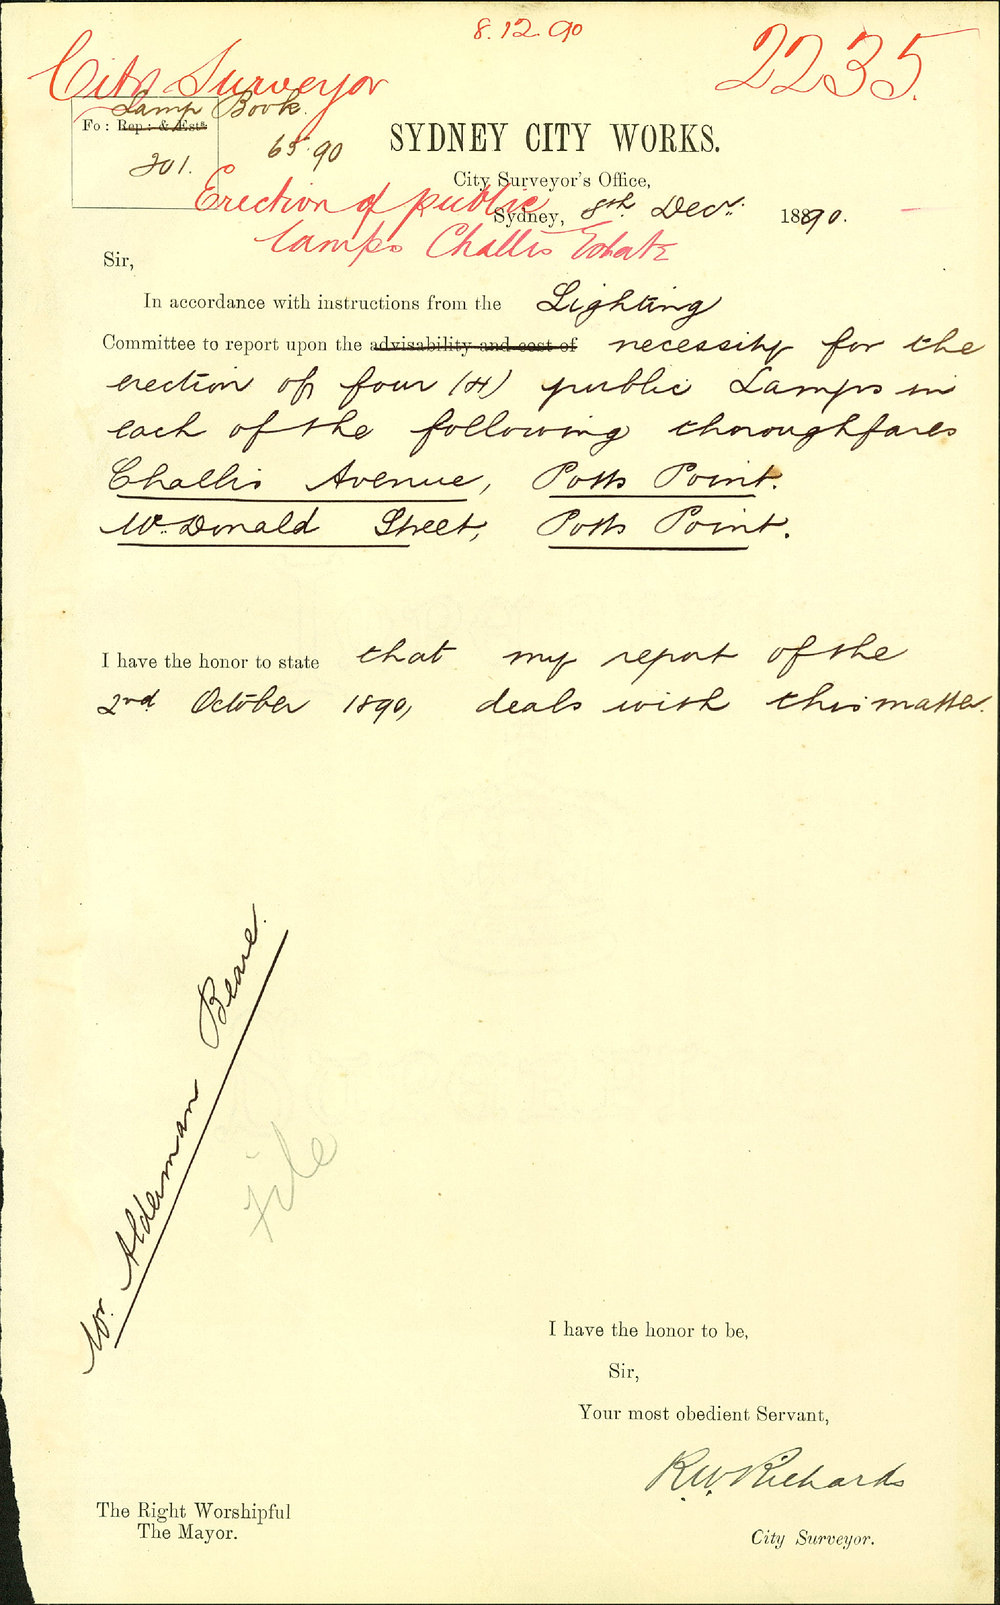 8.12.90
2235.
City Surveyor
Lamp Book.
Fo: Rep: & Ests
201.
65.90
SYDNEY CITY WORKS.
City Surveyor's Office,
Erection of public
Sydney, 8th Decr. 1890.
lamps Challis Estate
Sir,
In accordance with instructions from the Lighting
Committee to report upon the advisability and cost of necessity for the
erection of four (4) public Lamps in
each of the following thoroughfares
Challis Avenue, Potts Point.
McDonald Street, Potts Point.
I have the honor to state that my report of the
2nd October 1890, deals with this matter.
Mr. Alderman Beare.
File
I have the honor to be,
Sir,
Your most obedient Servant,
R.W. Richards
The Right Worshipful
The Mayor.
City Surveyor.